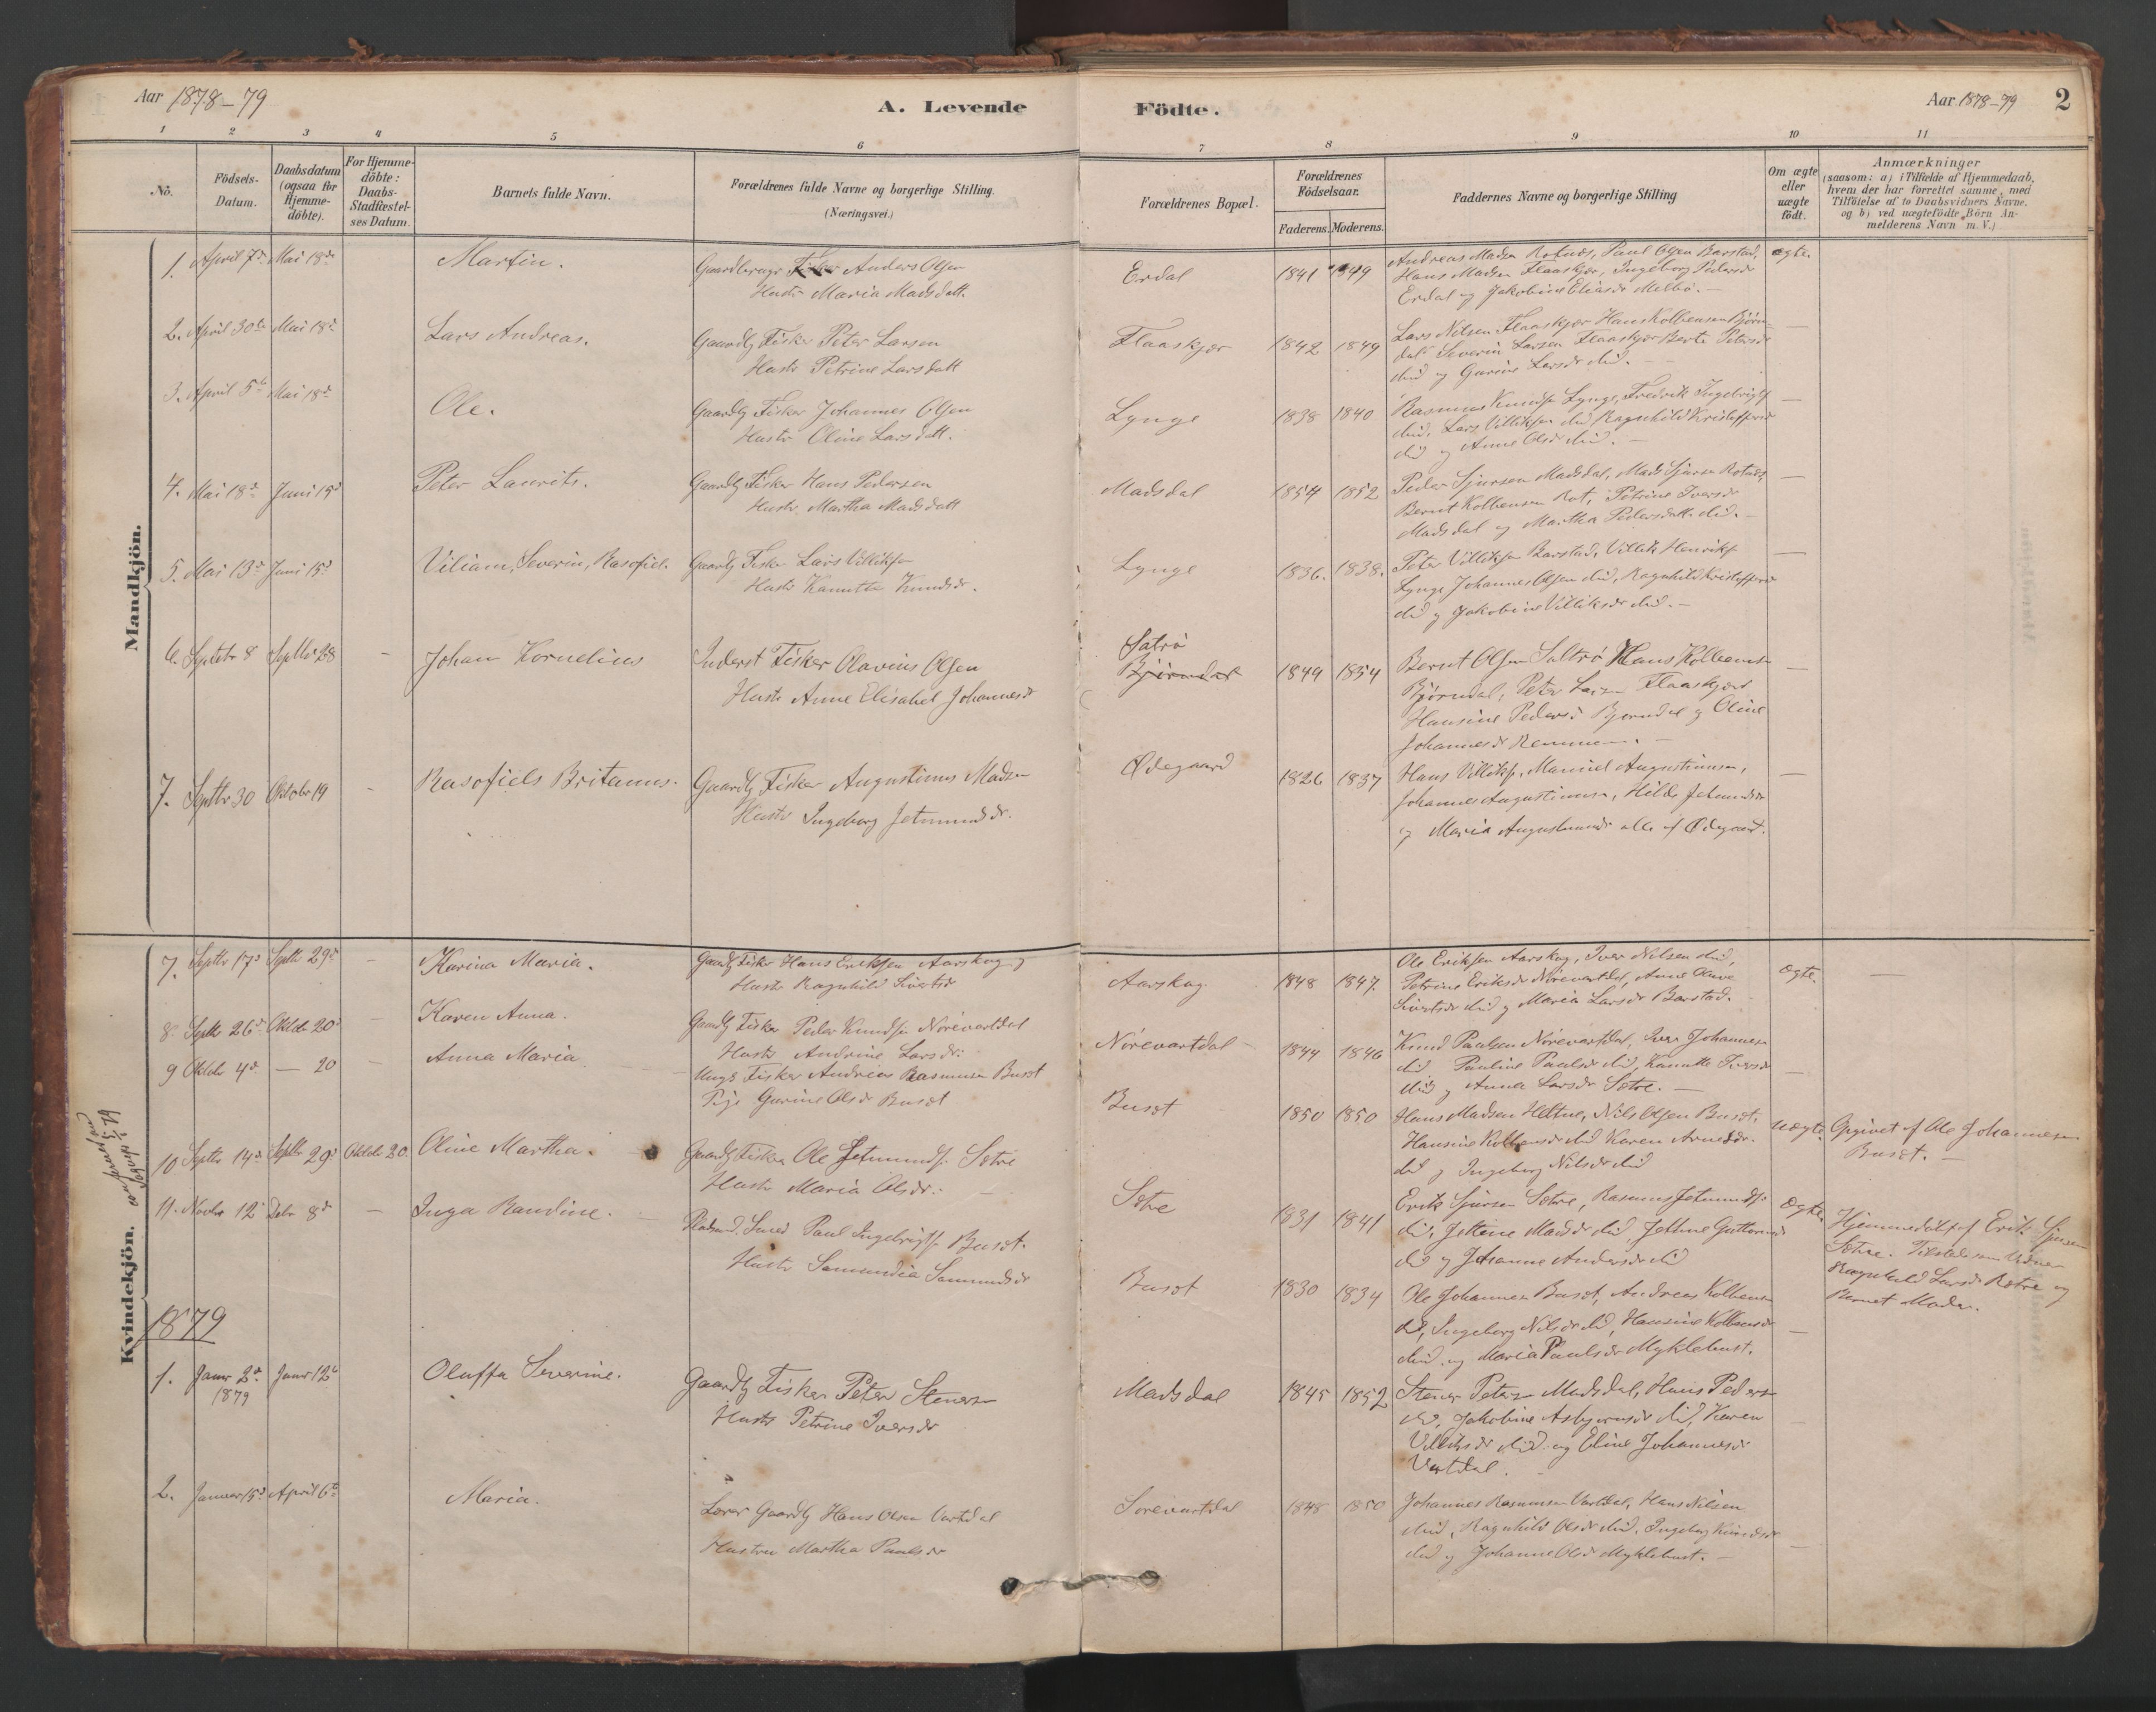 Aar 1878-79
A. Levende Födte.
Aar 1878-79
2
1 2 3 4 5 6 7 8 9 10 11
No.
Födsels-Datum.
Daabsdatum (ogsaa for Hjemme-döbte).
For Hjemme-döbte: Daabs-Stadfæstel-ses Datum.
Barnets fulde Navn.
Forældrenes fulde Navne og borgerlige Stilling.
(Næringsvei.)
Forældrenes Bopæl.
Forældrenes Födselsaar.
Faderens. Moderens.
Faddernes Navne og borgerlige Stilling
Om ægte eller uægte födt.
Anmærkninger
(saasom: a) i Tilfælde af Hjemmedaab,
hvem der har forrettet samme, med
Tilföielse af to Daabsvidners Navne.
og b) ved uægtefödte Börn An-
melderens Navn m. V.)
Mandkjön.
1. April 7d Mai 18de Martin.
Anders Olsen
Hustr Maria Madsdatt.
Erdal 1841 1849
Andreas Madsen Rotnæs, Paul Olsen Barstad,
Hans Madsen Flaaskjær, Ingeborg Pedersdr
Erdal og Jakobine Eliasdr Melbö. -
ægte.
2. April 30te Mai 18d Lars Andreas.
Gaardbr Fisker Peter Larsen
Hustr Petrine Larsdatt
Flaaskjær 1842 1849
Lars Nilsen Flaaskjær Hans Kolbensen Bjørn-
dal Severin Larsen Flaaskjær Berte Petersdr
ibid og Gurine Larsdr ibid. -
3. April 5te Mai 18d Ole.
Gaardbr Fisker Johannes Olsen
Hustr Oline Larsdatt.
Lynge 1838 1840
Rasmus Knudsen Lynge, Fredrik Ingebrigts
ibid, Lars Villiksen ibid Ragnhild Kristoffersdr
ibid og Anne Olsdr ibid. -
4. Mai 18d Juni 15d Peter Laurits.
Gaardbr Fisker Hans Pedersen
Hustr. Martha Madsdatt
Madsdal 1854 1852
Peder Sjursen Madsdal, Mads Sjursen Rotnæs,
Bernt Kolbensen Rot, Petrine Iversdr
Madsdal og Martha Pedersdatt. ibid. -
5. Mai 13d Juni 15d Viliam, Severin, Rasofiel.
Gaardbr Fisker Lars Villiksen
Hustr Kanutte Knudsdr.
Lynge 1836. 1838.
Peter Villiksen Barstad, Villik Henriks
Lynge Johannes Olsen ibid, Ragnhild Kristoffersdr
ibid og Jakobine Villiksdr ibid. -
6. Septbr 8 Septbr 28 - Johan Kornelius
Inderst Fisker Olavius Olsen
Hustr Anne Elisabet Johannesdr
Satrö
Björndal 1849 1854
Bernt Olsen Saltrö Hans Kolbens
Björndal, Peter Larsen Flaaskjær
Hansine Pedersdr Bjørndal og Oline
Johannesdr
7. Septbr 30 Oktobr 19 - Rasofiels Britanus.
Gaardbr Fisker Augustinus Madsen
Hustr Ingeborg Jetmundsdr.
Ødegaard 1826 1837
Hans Villiks, Manuel Augustinusen,
Johannes Augustinusen, Hilde Jetmundsdr
og Maria Augustinusdr alle af Ødegaard.
Kvindekjön.
7. Septbr 17d Septbr 29d - Karina Maria.
Gaardbr Fisker Hans Eriksen Aarskog og
Hustr Ragnhild Sivertsdr
Aarskog 1848 1847.
Ole Eriksen Aarskog, Iver Nilsen ibid,
Petrine Eriksdr Nörevartdal, Anne Oluve
Sivertsdr ibid og Maria Larsdr Barstad.
ægte. -
8. Septbr 26d Oktbr 20d - Karen Anna.
Gaardbr Fisker Peder Knudsen Nörevartdal
Hustr Andrine Larsdr.
Nörevartdal 1844 1846
Knud Paulsen Nörevartdal, Iver Johannesen
ibid Pauline Paulsdr ibid, Kanutte Iversdr
ibid og Anna Larsdr Sætre. -
9 Oktbr 4d - 20 - Anna Maria
Ungk Fisker Andreas Rasmusen Busæt
Pige Gurine Olsdr Busæt
Busæt 1850 1850
Hans Madsen Heltne, Nils Olsen Busæt,
Hansine Kolbensdr ibid Karen Arnesdr.
ibid og Ingeborg Nilsdr ibid
uægte. Opgivet af Ole Johannesen
Busæt. -
10 Septbr 14d Septbr 29d Oktbr 20. Oline Martha.
Gaardbr Fisker Ole Jetmunds. Sætre
Hustr Maria Olsdr.
Sætre 1831 1841
Erik Sjursen Sætre, Rasmus Jetmunds.
ibid, Jetline Madsdr ibid, Jethne Guttormsdr
ibid og Johanne Andersdr ibid
Ægte. Hjemmedöbt af Erik Sjursen
Sætre. Tilstede som Vidner
Ragnhild Larsdr Sætre og
Bernt Mads.
11. Novbr 12 Debr 8d - Inga Randine.
Pladsmd. Smed Paul Ingebrigts. Busæt.
Hustr Samundia Samundsdr
Busæt 1830 1834
Ole Johannesen Busæt, Andreas Kolbensen
ibid, Ingeborg Nilsdr ibid, Hansine Kolbensdr
ibid og Maria Paulsdr Myklebust.
1879
1. Januar 2d 1879 Januar 12te Oluffa Severine.
Gaardbr Fisker Peter Stenersen
Hustr Petrine Iversdr
Madsdal 1845 1852
Stener Petersen Madsdal, Hans Peders
ibid, Jakobine Asbjörnsdr ibid, Karen
Villiksdr ibid og Eline Johannesdr
Vartdal.
2. Januar 15d April 6te Maria.
Lærer Gaardbr Hans Olsen Vartdal
Hustru Martha Paulsdr
Sörevartdal 1848 1850
Johannes Rasmusen Vartdal, Hans Nilsen
ibid, Ragnhild Olsdr ibid, Ingeborg Knudsdr
ibid og Johanne Olsdr Myklebust. -